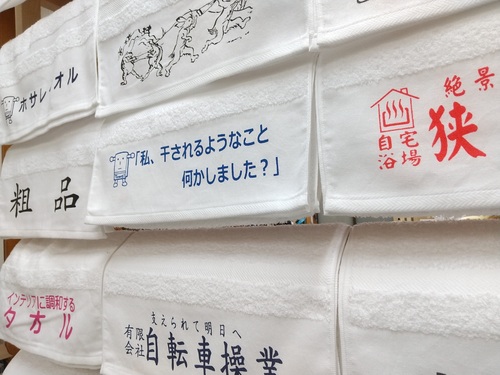 ホサレタオル
「私、干されるようなこと
何かしました？」
絶景
自宅
浴場
狭
粗品
インテリアに調和する
タオル
支えられて明日へ
有限
会社
自転車操業